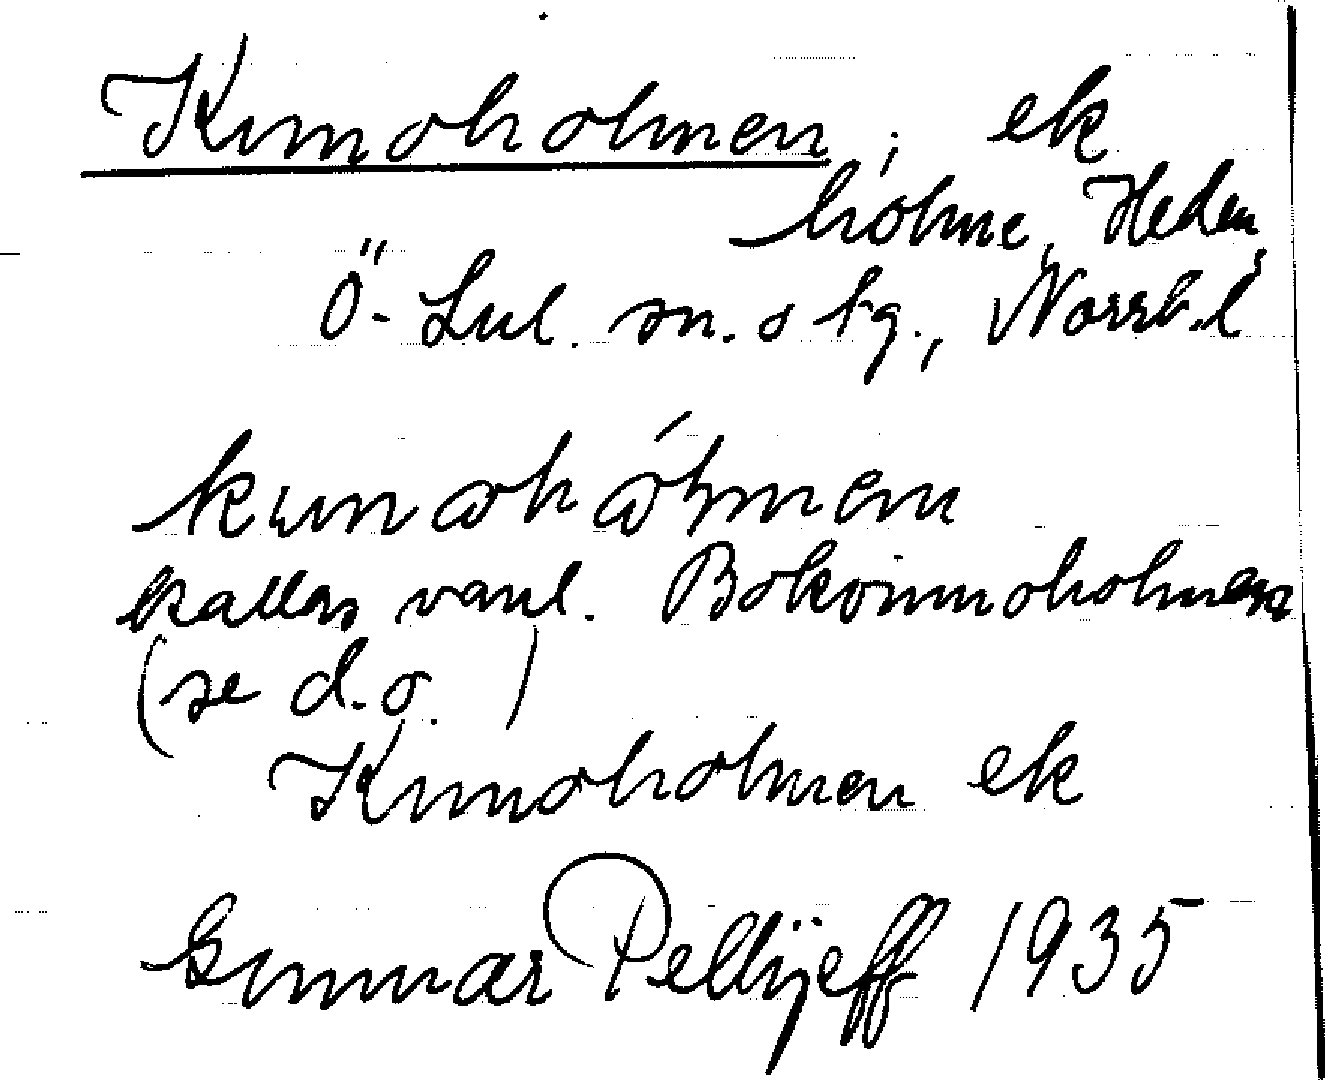 Kunoholmen, ek
holme, Heden,
Ö-Lul. sn. o tg., Norrb.l
kunaháƚmen
kallas vanl. Bokommoholmen
(se d.o.)
Kunoholmen ek
Gunnar Pellijeff 1935